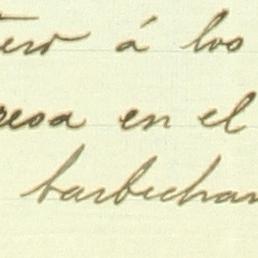 tero á los
resa en el
barbechar